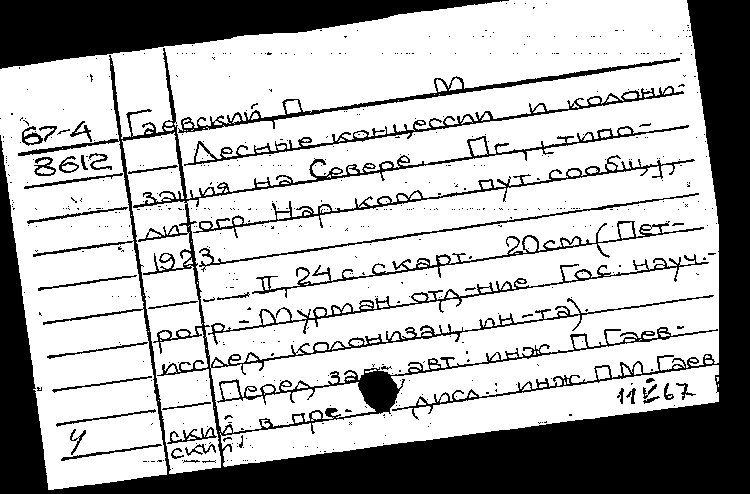 67-4
8612
Гаевский, П. М.
Лесные концессии и колони-
зация на Севере. Пг., [типо-
литогр. Нар. ком. пут. сообщ.],
1923.
II, 24 с. с карт. 20 см. (Пет-
рогр.-Мурман. отд-ние Гос. науч.-
исслед. колонизац. ин-та).
Перед авт.: инж. П. Гаев-
ский. в дисл.: инж. П.М. Гаев
ский.
У